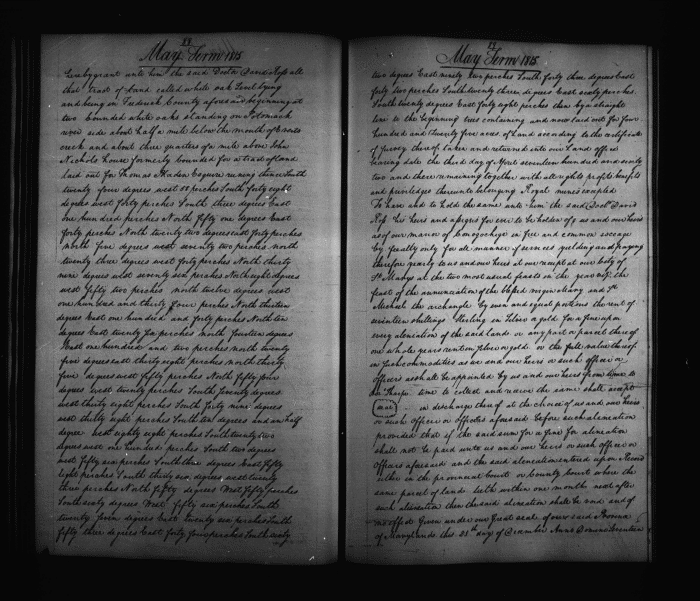 May Term 1815
hereby grant unto him the said Doctor David Ross all
that tract of Land called white oak Level lying
and being in Frederick County aforesaid beginning at
two bounded white oaks standing on Potomack
river side about half a mile below the mouth of
creek and about three quarters of a mile above John
Nichols house formerly bounded for a tract of land
laid out for Thomas Esquire runing thence South
twenty four degrees west perches South forty eight
degrees west forty perches South three degrees East
one hundred perches North fifty one degrees East
forty perches North twenty two degrees east forty perches
north five degrees west seventy two perches north
twenty three degrees west forty perches North thirty
nine degrees west seventy six perches North eight degrees
west fifty two perches north twelve degrees west
one hundred and thirty four perches North thirteen
degrees East one hundred and forty perches North ten
degrees East twenty six perches north fourteen degrees
East one hundred and two perches north twenty
five degrees east thirty eight perches north thirty
five degrees west fifty perches North fifty four
degrees west twenty perches South seventy degrees
west thirty eight perches South forty nine degrees
west thirty eight perches South ten degrees and an half
degree west eighty eight perches South twenty two
degrees west one hundred perches South two degrees
west fifty six perches South three degrees East fifty
eight perches South thirty six degrees west twenty
three perches North fifty degrees West fifty perches
South sixty degrees West fifty six perches South
twenty seven degrees East twenty six perches South
fifty three degrees East forty four perches South sixty
May Term 1815
two degrees East ninety two perches South forty three degrees East
forty two perches South twenty thirteen degrees East sixty perches
South twenty degrees East forty eight perches then by a straight
line to the beginning trees containing and now laid out for four
hundred and twenty five acres of Land according to the certificate
of survey thereof taken and returned into our Land office
bearing date the third day of April seventeen hundred and sixty
two and there remaining together with all rights profits benefits
and priviledges thereunto belonging Royal mines excepted
To have and to hold the same unto him the said Doctr David
Ross his heirs and assigns for ever to be holden of us and our heirs
as of our manor of Conogochege in free and common soccage
by fealty only for all manner of services yielding and paying
therefor yearly to us and our heirs at our receipt at our City of
St Marys at the two most usual feasts in the year viz the
feast of the annunciation of the blessed virgin Mary and St
Michael the archangle by even and equal portions the rent of
seventeen shillings Sterling in silver or gold for a fine upon
every alienation of the said Land or any part or parcel thereof
one whole years rent in silver or gold or the full value thereof
in such commodities as we and our heirs or such officer or
officers as shall be appointed by us and our heirs from time to
time to collect and receive the same shall accept
in discharge thereof at the choice of us and our heirs
or such officer or officers aforesaid before such alienation
provided that if the said sum for a fine for alienation
shall not be paid unto us and our heirs or such officer or
officers aforesaid and the said alienation entered upon Record
either in the provincial Court or County Court where the
same parcel of land lieth within one month next after
such alienation then the said alienation shall be void and of
no effect Given under our Great seal of our said Province
of Maryland this 21st day of December Anno Domini Seventeen